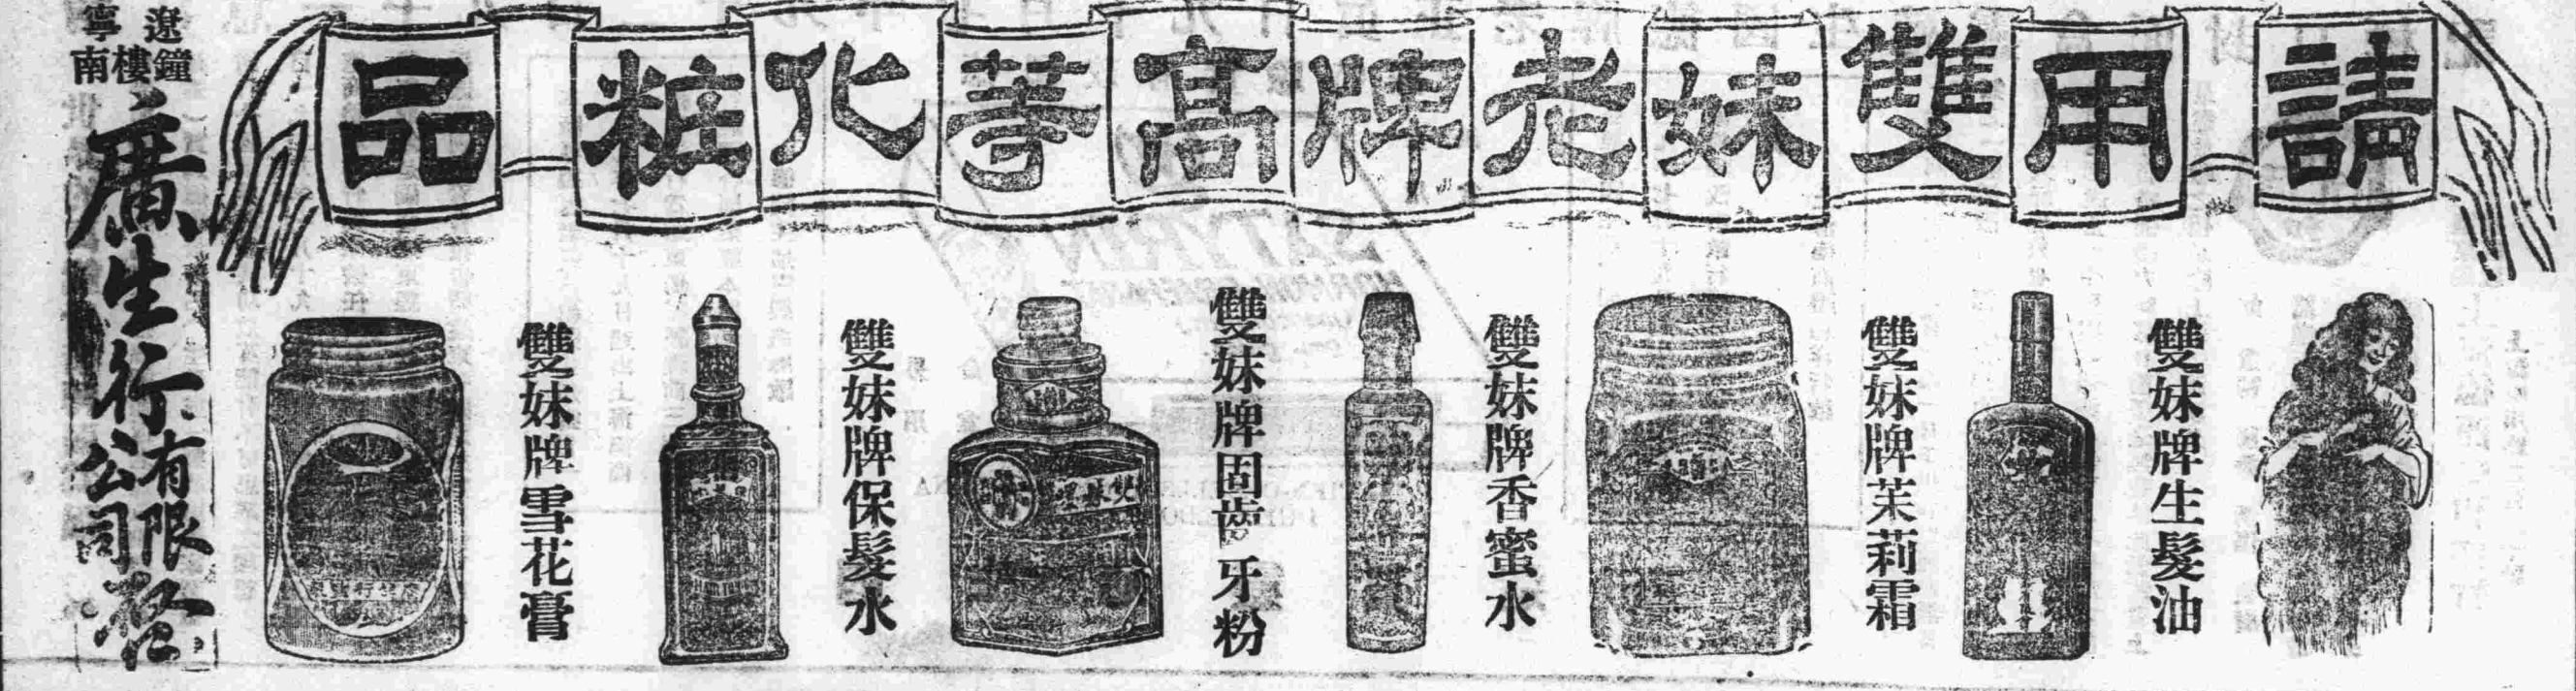 請用雙妹老牌高等化粧品
雙妹牌生髮油
雙妹牌茉莉霜
雙妹牌香蜜水
雙妹牌固齒牙粉
雙妹牌保髮水
雙妹牌雪花膏
遼寧
鐘樓南
廣生行有限公司啓